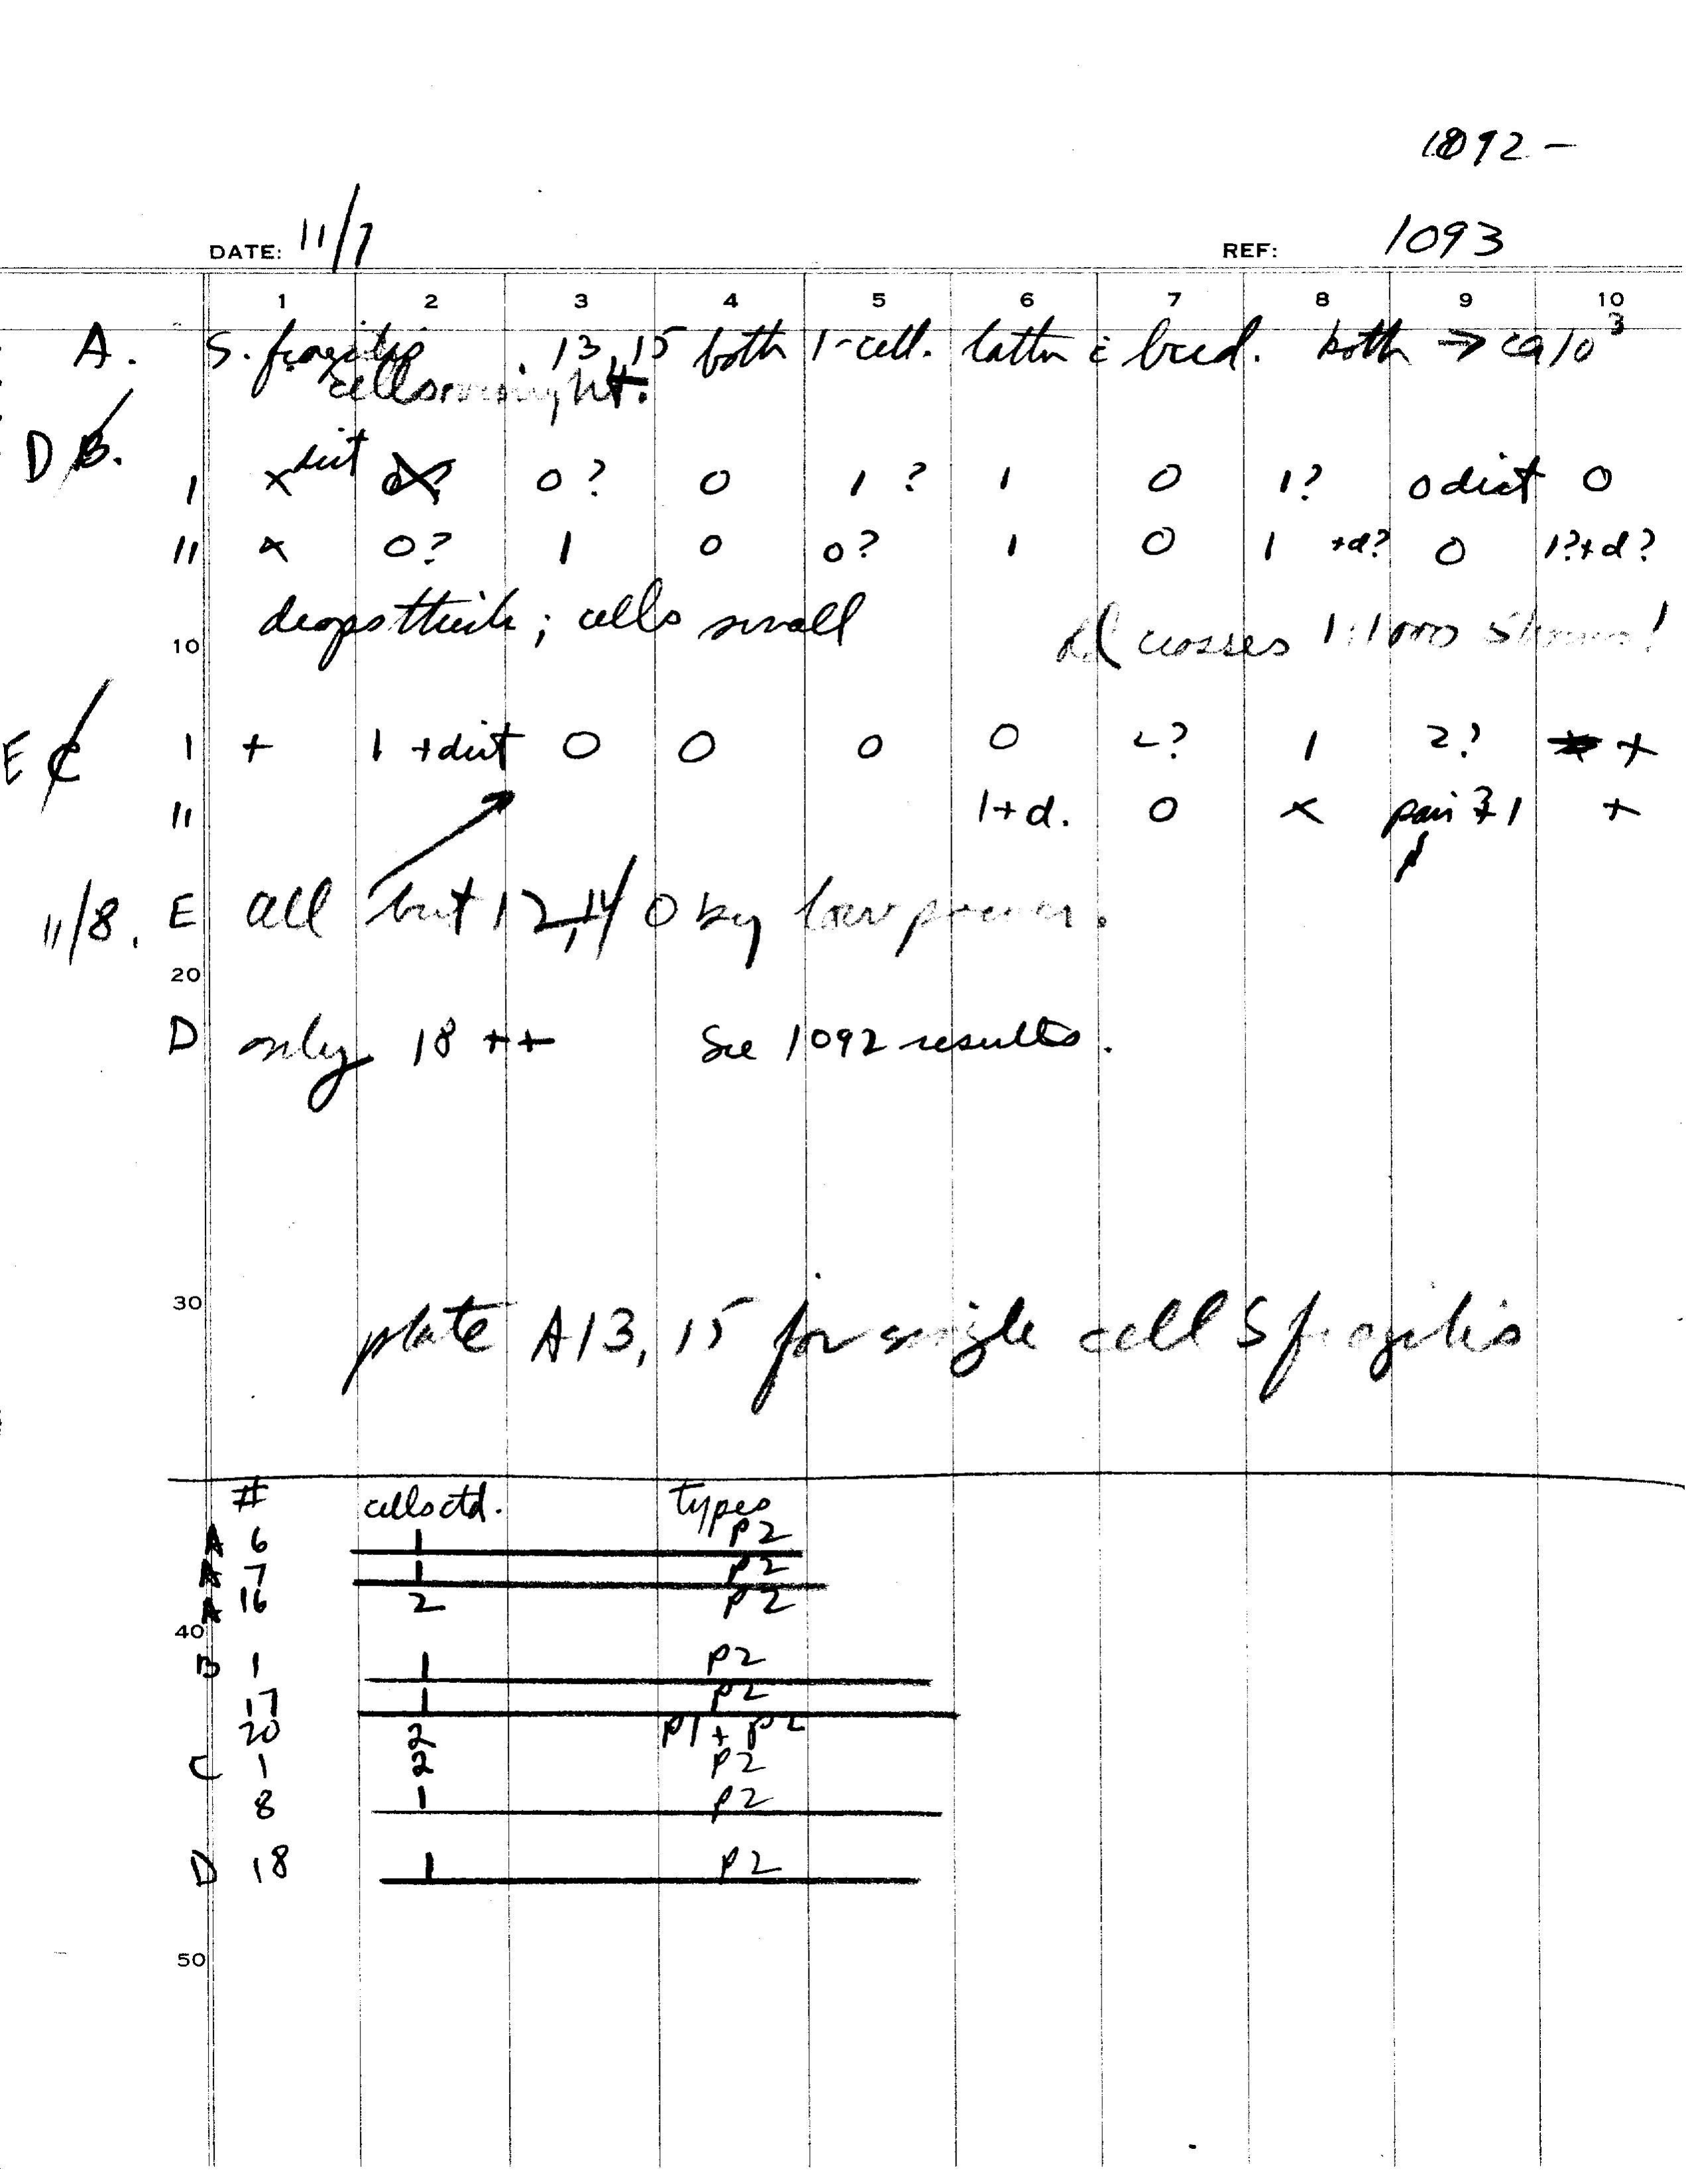 1092 -
DATE: 11/7 REF: 1093
1 2 3 4 5 6 7 8 9 10
A. S. fragilis 13, 15 both 1-cell. latter c̄ bud. both → ca 10³
cells overnight.
D B.
1 x dirt 0? 0? 0 1 ? 1 0 1? 0 dirt 0
11 x 0? 1 0 0? 1 0 1 +d? 0 1?+d?
drops thick; cells small
10 crosses 1:1000
E C 1 + 1 +dirt 0 0 0 0 2? 1 2? x +
11 1+d. 0 x pair 1 +
11/8. E all but 12, 14 0 by low power.
20
D only 18 ++ See 1092 results.
30 plate A13, 15 for single cell S fragilis
# cells ctd. types
A 6 1 P2
A 7 1 P2
A 16 2 P2
40
B 1 1 P2
17 1 P2
20 2 P1 + P2
C 1 2 P2
8 1 P2
D 18 1 P2
50